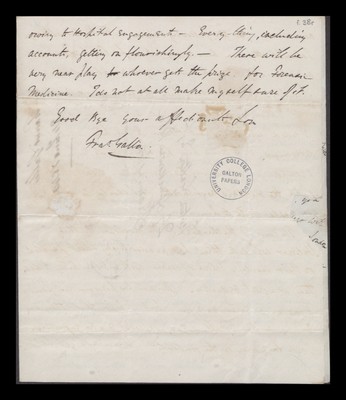 owing to Hospital Engagements – Every thing, including
accounts, getting on flourishingly. – There will be
very near play to whoever gets the prize for Forensic
Medicine. I do not at all make myself sure of it.
Good Bye your affectionate Son
Fras Galton
UNIVERSITY COLLEGE LONDON
GALTON
PAPERS